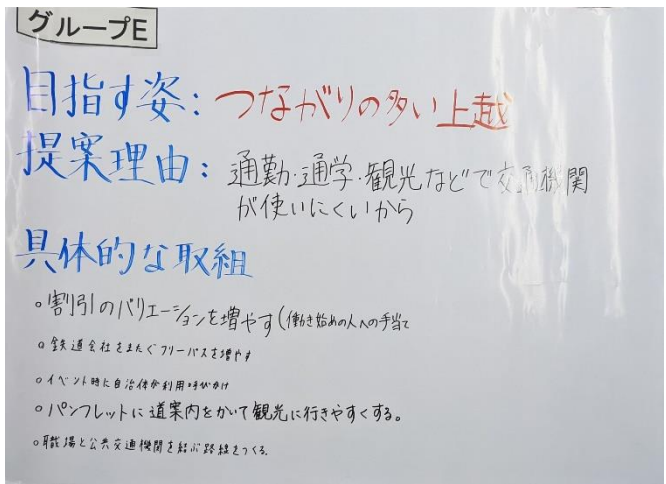 グループE
目指す姿：つながりの多い上越
提案理由：通勤・通学・観光などで交通機関
が使いにくいから
具体的な取組
○割引のバリエーションを増やす(働き始めの人への手当て
○鉄道会社をまたぐフリーパスを増やす
○イベント時に自治体が利用呼びかけ
○パンフレットに道案内をかいて観光に行きやすくする。
○職場と公共交通機関を結ぶ路線をつくる。